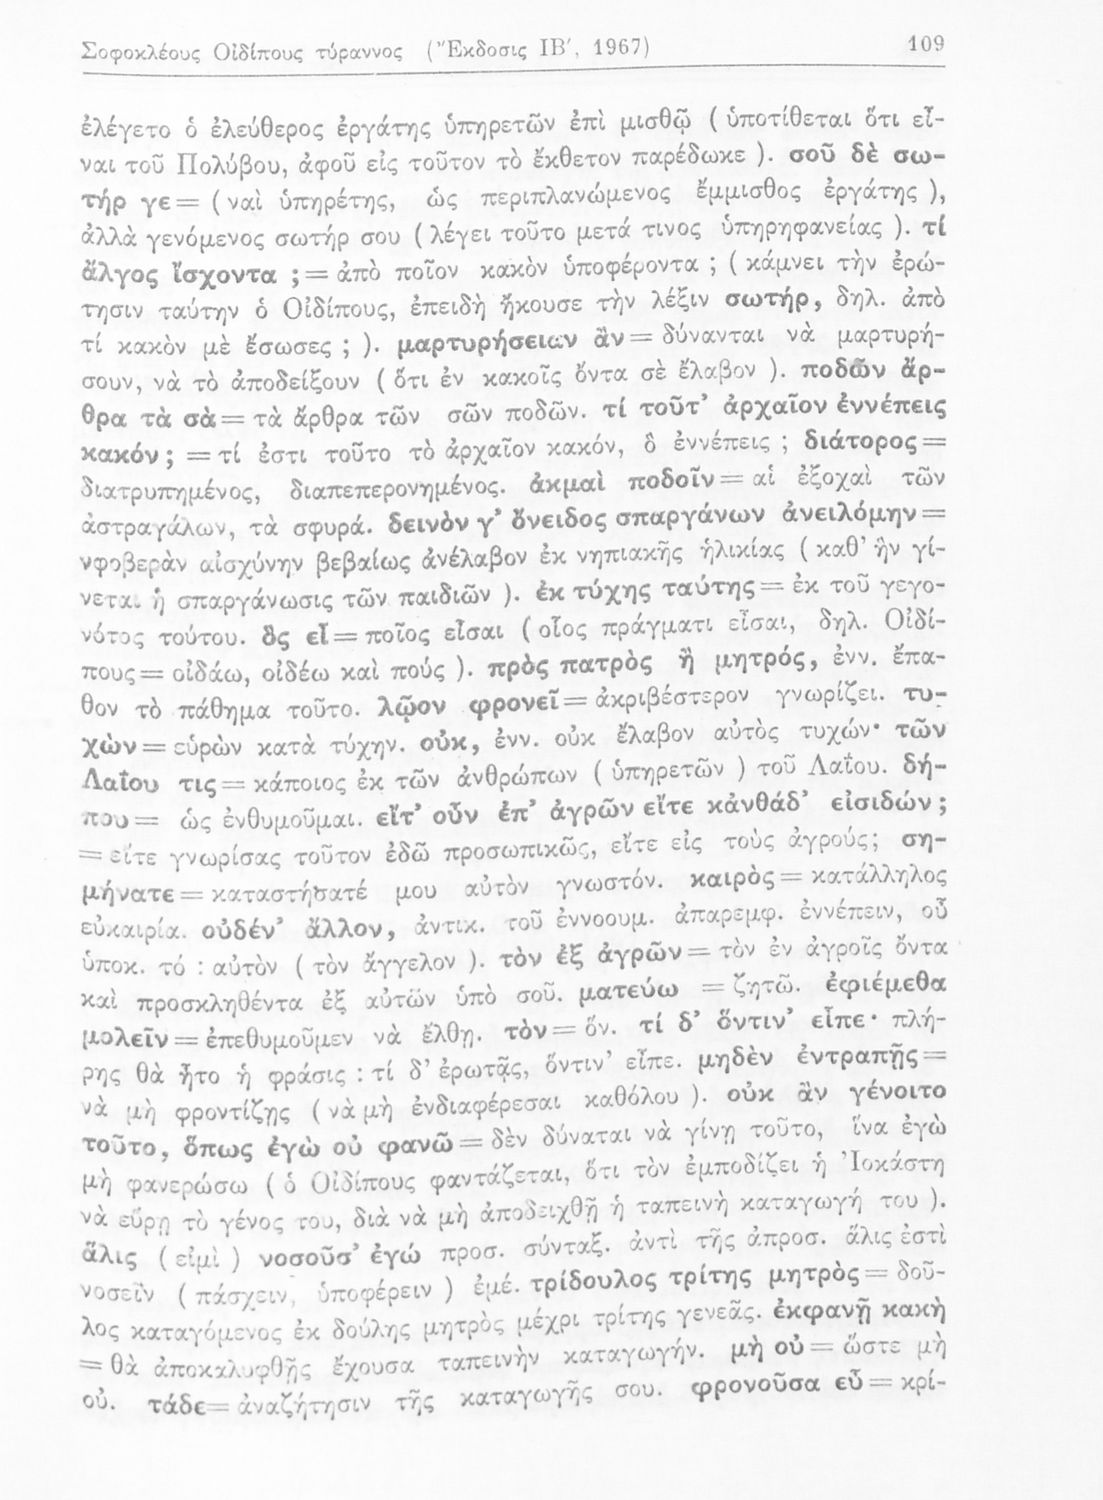 Σοφοκλέους Οἰδίπους τύραννος (Ἔκδοσις ΙΒ′, 1967) 109
ἐλέγετο ὁ ἐλεύθερος ἐργάτης ὑπηρετῶν ἐπὶ μισθῷ ( ὑποτίθεται ὅτι εἶ-
ναι τοῦ Πολύβου, ἀφοῦ εἰς τοῦτον τὸ ἔκθετον παρέδωκε ). σοῦ δὲ σω-
τήρ γε = ( ναὶ ὑπηρέτης, ὡς περιπλανώμενος ἔμμισθος ἐργάτης ),
ἀλλὰ γενόμενος σωτήρ σου ( λέγει τοῦτο μετά τινος ὑπηρηφανείας ). τί
ἄλγος ἴσχοντα ; = ἀπὸ ποῖον κακὸν ὑποφέροντα ; ( κάμνει τὴν ἐρώ-
τησιν ταύτην ὁ Οἰδίπους, ἐπειδὴ ἤκουσε τὴν λέξιν σωτήρ, δηλ. ἀπὸ
τί κακὸν μὲ ἔσωσες ; ). μαρτυρήσειαν ἂν = δύνανται νὰ μαρτυρή-
σουν, νὰ τὸ ἀποδείξουν ( ὅτι ἐν κακοῖς ὄντα σὲ ἔλαβον ). ποδῶν ἄρ-
θρα τὰ σὰ = τὰ ἄρθρα τῶν σῶν ποδῶν. τί τοῦτ’ ἀρχαῖον ἐννέπεις
κακόν ; = τί ἐστι τοῦτο τὸ ἀρχαῖον κακόν, ὃ ἐννέπεις ; διάτορος =
διατρυπημένος, διαπεπερονημένος. ἀκμαὶ ποδοῖν = αἱ ἐξοχαὶ τῶν
ἀστραγάλων, τὰ σφυρά. δεινὸν γ’ ὄνειδος σπαργάνων ἀνειλόμην =
νφοβερὰν αἰσχύνην βεβαίως ἀνέλαβον ἐκ νηπιακῆς ἡλικίας ( καθ’ ἣν γί-
νεται ἡ σπαργάνωσις τῶν παιδιῶν ). ἐκ τύχης ταύτης = ἐκ τοῦ γεγο-
νότος τούτου. ὃς εἶ = ποῖος εἶσαι ( οἷος πράγματι εἶσαι, δηλ. Οἰδί-
πους = οἰδάω, οἰδέω καὶ πούς ). πρὸς πατρὸς ἢ μητρός, ἐνν. ἔπα-
θον τὸ πάθημα τοῦτο. λῷον φρονεῖ = ἀκριβέστερον γνωρίζει. τυ-
χὼν = εὑρὼν κατὰ τύχην. οὐκ, ἐνν. οὐκ ἔλαβον αὐτὸς τυχών· τῶν
Λαΐου τις = κάποιος ἐκ τῶν ἀνθρώπων ( ὑπηρετῶν ) τοῦ Λαΐου. δή-
που = ὡς ἐνθυμοῦμαι. εἴτ’ οὖν ἐπ’ ἀγρῶν εἴτε κἀνθάδ’ εἰσιδών ;
= εἴτε γνωρίσας τοῦτον ἐδῶ προσωπικῶς, εἴτε εἰς τοὺς ἀγρούς; ση-
μήνατε = καταστήσατέ μου αὐτὸν γνωστόν. καιρὸς = κατάλληλος
εὐκαιρία. οὐδέν’ ἄλλον, ἀντικ. τοῦ ἐννοουμ. ἀπαρεμφ. ἐννέπειν, οὗ
ὑποκ. τό : αὐτὸν ( τὸν ἄγγελον ). τὸν ἐξ ἀγρῶν = τὸν ἐν ἀγροῖς ὄντα
καὶ προσκληθέντα ἐξ αὐτῶν ὑπὸ σοῦ. ματεύω = ζητῶ. ἐφιέμεθα
μολεῖν = ἐπεθυμοῦμεν νὰ ἔλθῃ. τὸν = ὅν. τί δ’ ὅντιν’ εἶπε· πλή-
ρης θὰ ἦτο ἡ φράσις : τί δ’ ἐρωτᾷς, ὅντιν’ εἶπε. μηδὲν ἐντραπῇς =
νὰ μὴ φροντίζῃς ( νὰ μὴ ἐνδιαφέρεσαι καθόλου ). οὐκ ἂν γένοιτο
τοῦτο, ὅπως ἐγὼ οὐ φανῶ = δὲν δύναται νὰ γίνῃ τοῦτο, ἵνα ἐγὼ
μὴ φανερώσω ( ὁ Οἰδίπους φαντάζεται, ὅτι τὸν ἐμποδίζει ἡ Ἰοκάστη
νὰ εὕρῃ τὸ γένος του, διὰ νὰ μὴ ἀποδειχθῇ ἡ ταπεινὴ καταγωγή του ).
ἅλις ( εἰμὶ ) νοσοῦσ’ ἐγώ προσ. σύνταξ. ἀντὶ τῆς ἀπροσ. ἅλις ἐστὶ
νοσεῖν ( πάσχειν, ὑποφέρειν ) ἐμέ. τρίδουλος τρίτης μητρὸς = δοῦ-
λος καταγόμενος ἐκ δούλης μητρὸς μέχρι τρίτης γενεᾶς. ἐκφανῇ κακὴ
= θὰ ἀποκαλυφθῇς ἔχουσα ταπεινὴν καταγωγήν. μὴ οὐ = ὥστε μὴ
οὐ. τάδε = ἀναζήτησιν τῆς καταγωγῆς σου. φρονοῦσα εὖ = κρί-